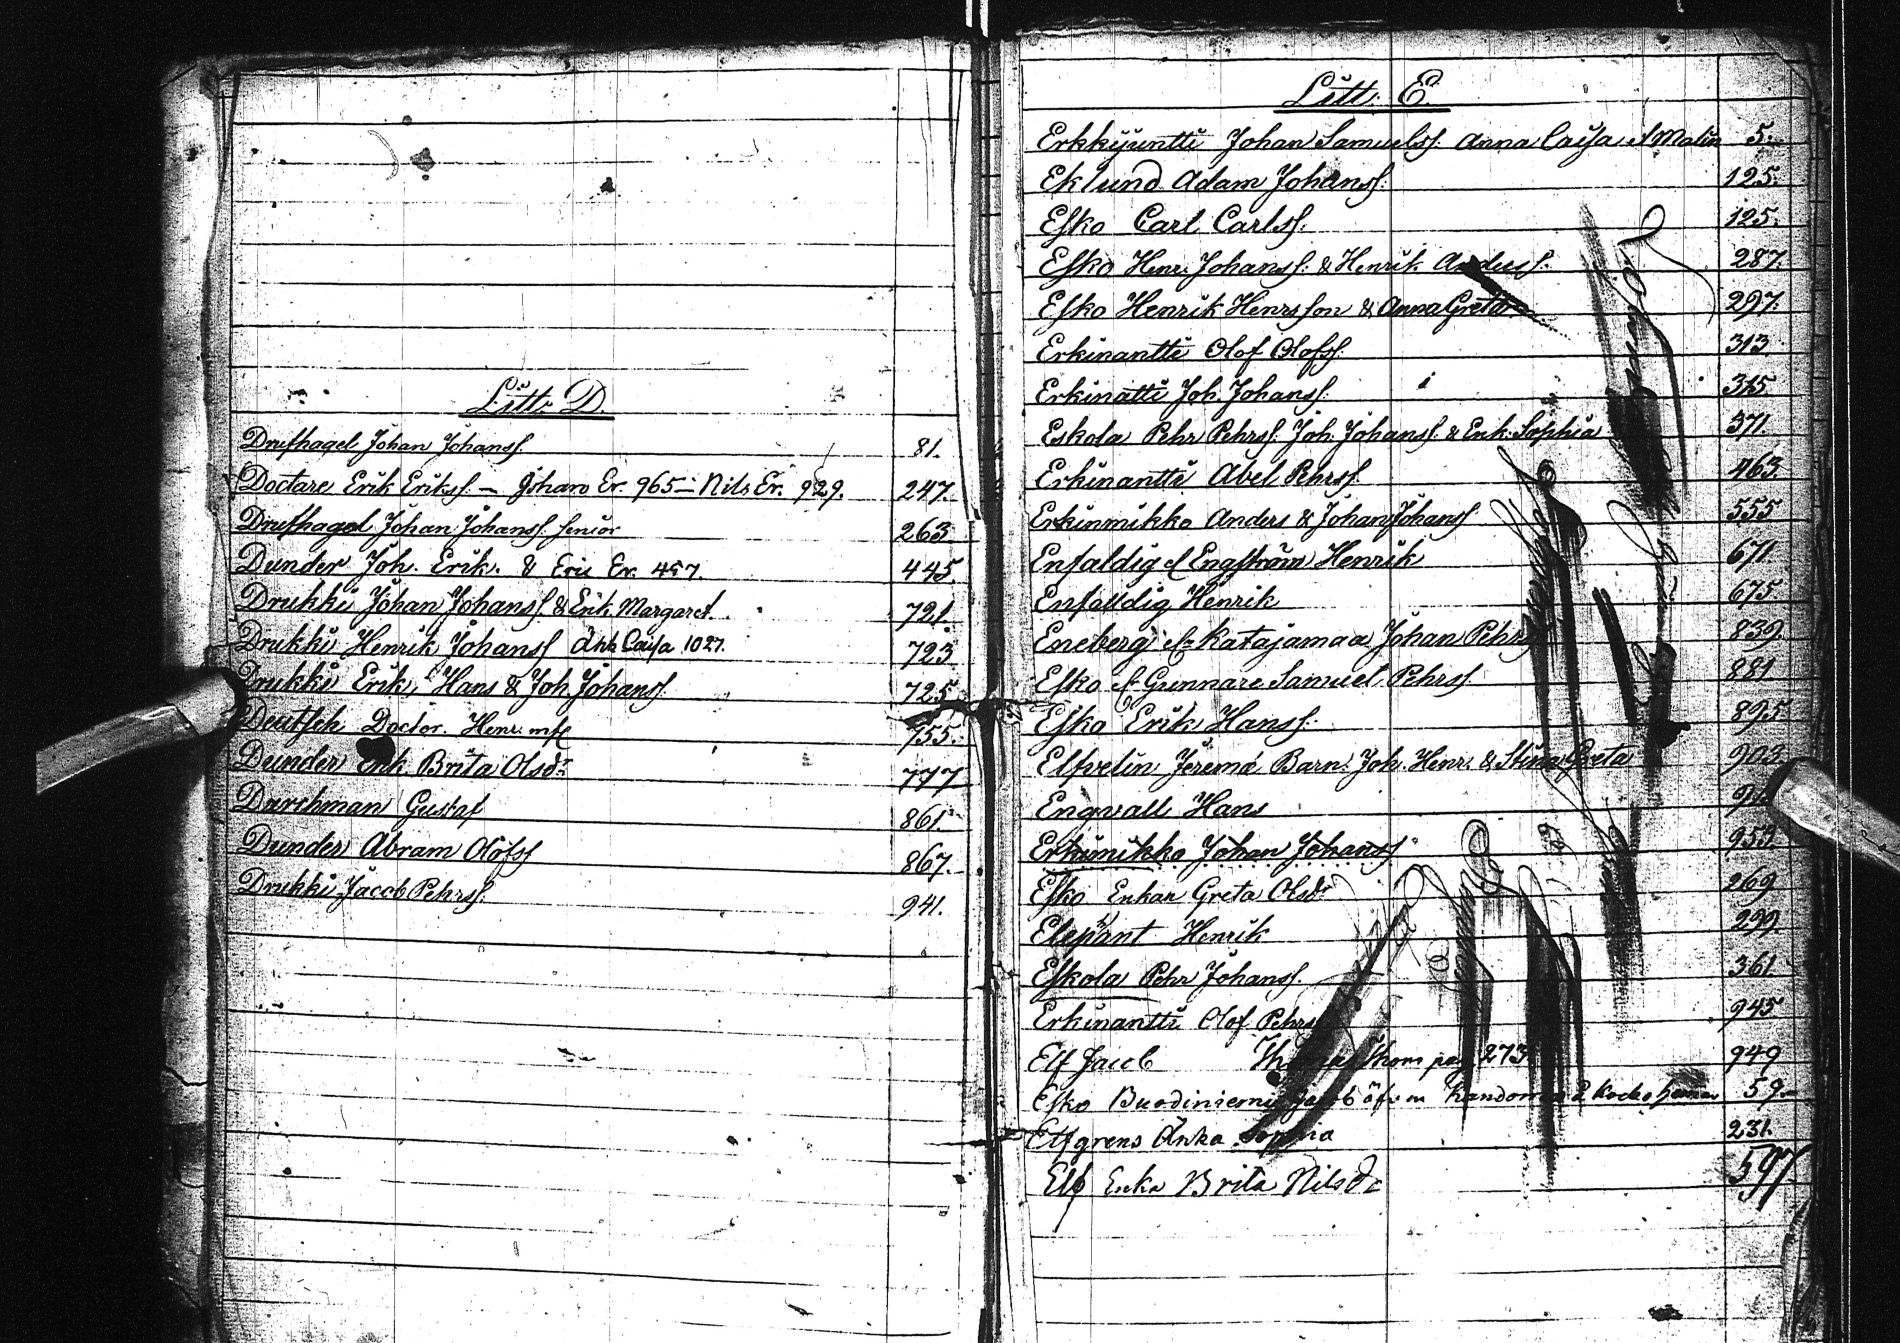 Litt. D.
Drufhagel Johan Johanss. 81.
Doctare Erik Erikss. – Johan Er. 965 – Nils Er. 929. 247.
Drufhagel Johan Johanss. senior 263
Dunder Joh. Erik. & Eric Er. 457. 445.
Drukki Johan Johanss. & Enk. Margaret. 721.
Drukki Henrik Johanss Änk Caisa 1027. 723
Drukki Erik, Hans & Joh Johanss 725.
Deutsch Doctor. Henr. 755.
Dunder Enk Brita Olsdr 777
Durchman Gustaf 861.
Dunder Abram Olofss 867.
Drukki Jacob Pehrss. 941.
Litt. E.
Erkkijuntti Johan Samuelss. Anna Caisa Malin 5.
Eklund Adam Johanss. 125.
Esko Carl Carlss. 125.
Esko Henr. Johanss. & Henrik Anderss. 287.
Esko Henrik Henrsson & Anna Greta 297.
Erkinantti Olof Olofss. 313
Erkinatti Joh. Johanss. 315
Eskola Pehr Pehrss. Joh. Johanss. & Enk. Sophia 371.
Erkinantti Abel Pehrss. 463.
Erkinmikko Anders & Johan Johanss 555
Enfaldig el Engström Henrik 671.
Enfalldig Henrik 675.
Eneberg el Katajamaa Johan Pehrss 839.
Esko el Gunnare Samuel Pehrss 881
Esko Erik Hanss. 895.
Elfvelin Jerema Barn. Joh. Henr. & Stina Greta 903.
Engvall Hans
Erkimikko Johan Johanss 953.
Esko Enkan Greta Olsdr 269
Elepant Henrik 299.
Eskola Pehr Johanss. 361
Erkinantti Olof Pehrss 945
Elf Jacob Thom pag 273. 949
Esko 59.
Elfgrens Änka Sophia 231.
Elf Enka Brita Nilsdr 597